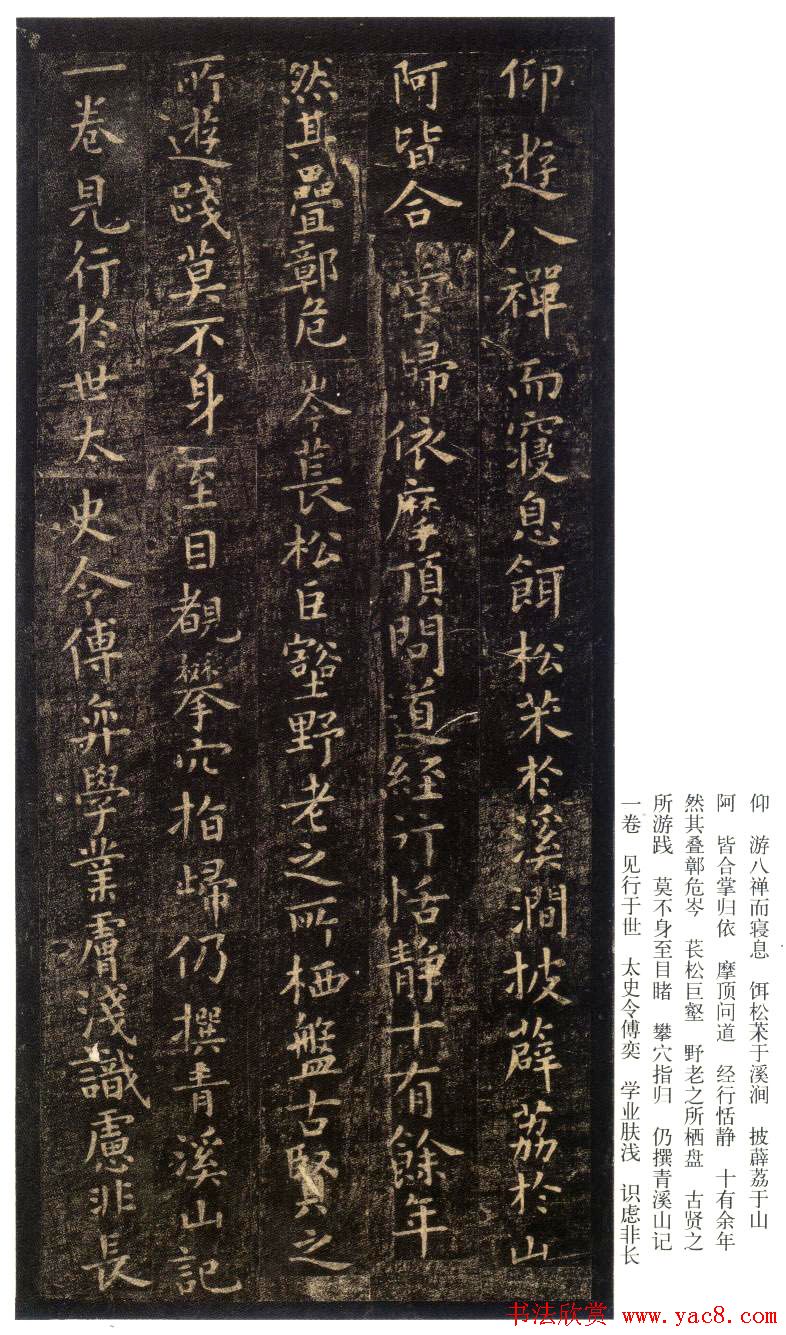 仰遊八禪而寢息餌松茱於溪澗披薜荔於山
阿皆合掌歸依摩頂問道經行恬靜十有餘年
然其疊鄣危岑萇松巨壑野老之所栖盤古賢之
所遊踐莫不身至目覩攀穴指歸仍撰青溪山記
一卷見行於世太史令傅弈學業膚淺識慮非長
仰 游八禅而寝息 饵松茱于溪涧 披薜荔于山
阿 皆合掌归依 摩顶问道 经行恬静 十有余年
然其叠鄣危岑 苌松巨壑 野老之所栖盘 古贤之
所游践 莫不身至目睹 攀穴指归 仍撰青溪山记
一卷 见行于世 太史令傅奕 学业肤浅 识虑非长
书法欣赏 www.yac8.com